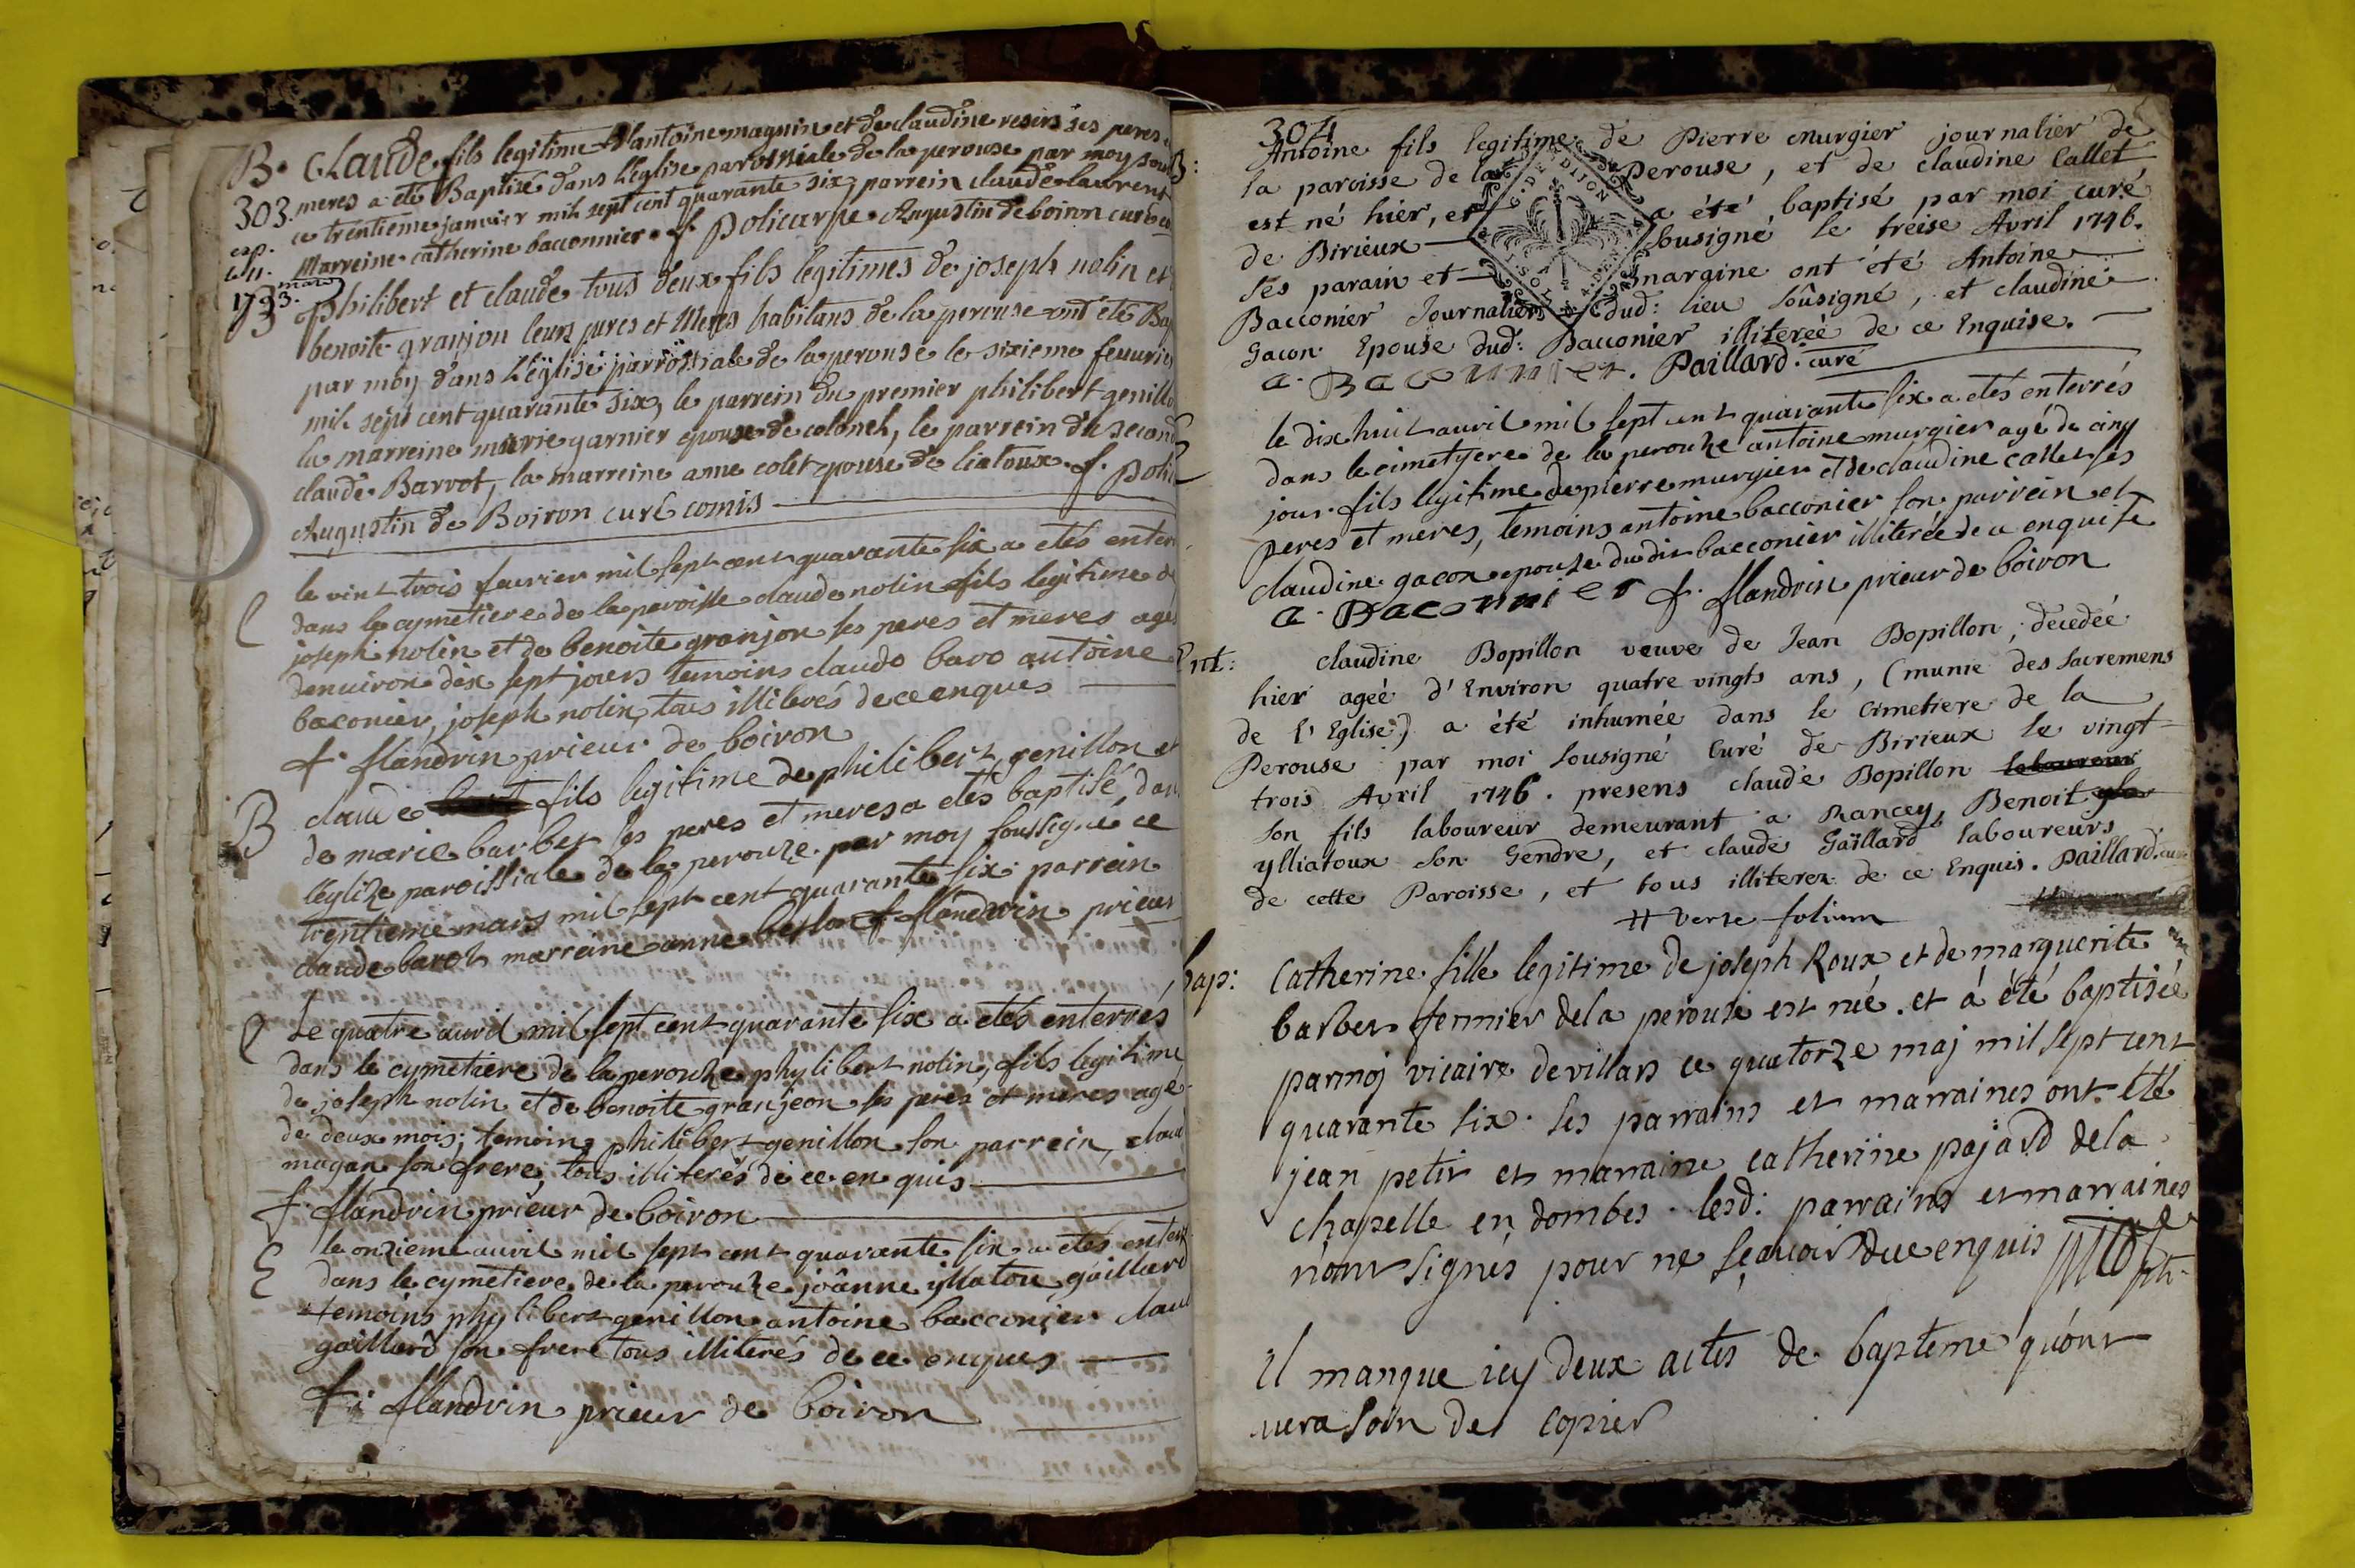 B. Claude fils legitime d'antoine magnin et de claudine resirs ses peres
303. meres a été Baptisé dans l'eglise paroissiale de la perouse par moy sou
ce trentieme janvier mil sept cent quarante six, parrein claude laurent
Marreine catherine bacconnier. f. Policarpe Augustin de boiron curé
1793
mars 3.
Philibert et claude tous deux fils legitimes de joseph nolin et
benoite granjon leurs peres et Meres habitans de la perouse ont été Ba
par moy dans L'eglise parrossiale de la perouse le sixieme feuurie
mil sept cent quarante six, le parrein du premier philibert genillo
la marreine marie garnier epouse de colonel, le parrein du second
claude Barrot, la marreine anne colet epouse de liatoux. f. Poli
Augustin de Boiron curé comis
le vint trois feurier mil sept cent quarante six a etés enter
dans le cymetiere de la paroisse claude nolin fils legitime d
joseph nolin et de benoite granjon ses peres et meres agé
denuiron dix sept jours temoins claude baro antoine
baconier, joseph nolin, tous illiterés de ce enques
f. flandrin prieur de boiron
B claude fils legitime de philibert genillon et
de marie barbet ses peres et meres a etés baptisé, dan
leglize paroissiale de la perouze par moy soussigné ce
trentieme mars mil sept cent quarante six parrein
claude barot marreine anne f flandrin prieur
Le quatre auril mil sept cent quarante six a etés enterrés
dans le cymetiere de la perouze phylibert nolin, fils legitime
de joseph nolin et de benoite granjeon ses peres et meres agé
de deux mois; temoins philibert genillon son parrein, claud
magan son frere, tous illiterés de ce en quis
f. flandrin prieur de boiron
le onzieme auril mil sept cent quarante six a etés enterr
E dans le cymetiere de la perouze joânne yllatou gaillard
temoins phylibert genillon antoine bacconier claud
gaillard son frere tous illiterés de ce enques
f: flandrin prieur de boiron
304
B: Antoine fils legitime de Pierre murgier journalier de
la paroisse de la Perouse, et de claudine Callet
est né hier, et a été baptisé par moi curé
de Birieux sousigné le treise Avril 1746.
ses parain et maraine ont été Antoine
Bacconier Journalier dud: lieu soûsigné, et claudine
Gacon Epouse dud: Bacconier illitereé de ce Enquise.
a. Baconnier. Paillard. curé
G. DE DIJON
le dix huit auril mil sept cent quarante six a etés enterrés
dans le cimetyere de la perouze antoine murgier agé de cinq
jour. fils legitime de pierre murgier et de claudine callet ses
peres et meres, temoins antoine bacconier son parrein et
claudine gacon epouse dudit bacconier illiterée de ce enquise
a. Baconnier f. flandrin prieur de boiron
Ent: claudine Bopillon veuve de Jean Bopillon, decedée
hier ageé d'Environ quatre vingts ans, (munie des sacremens
de l'Eglise) a été inhumée dans le Cimetiere de la
Perouse par moi sousigné Curé de Birieux le vingt
trois Avril 1746. presens claude Bopillon laboureur
son fils laboureur demeurant a Rancey, Benoit
ylliatoux son Gendre, et claude Gaillard laboureurs
de cette Paroisse, et tous illiterez de ce Enquis. Paillard. curé
# verte folium
bap: Catherine fille legitime de joseph Roux et de marguerite
barbet fermier dela perouse est neé. et á été baptiseé
parmoj vicaire devillars ce quatorze maj mil sept cent
quarante six. ses parrains et marraines ont eté
jean petit et marraine catherine pajard dela
chapelle en dombes. lesd: parrains et marraines
n'ont signés pour ne sçavoir due enquis
Il manque icy deux actes de bapteme qu'ont
aura soin de copier